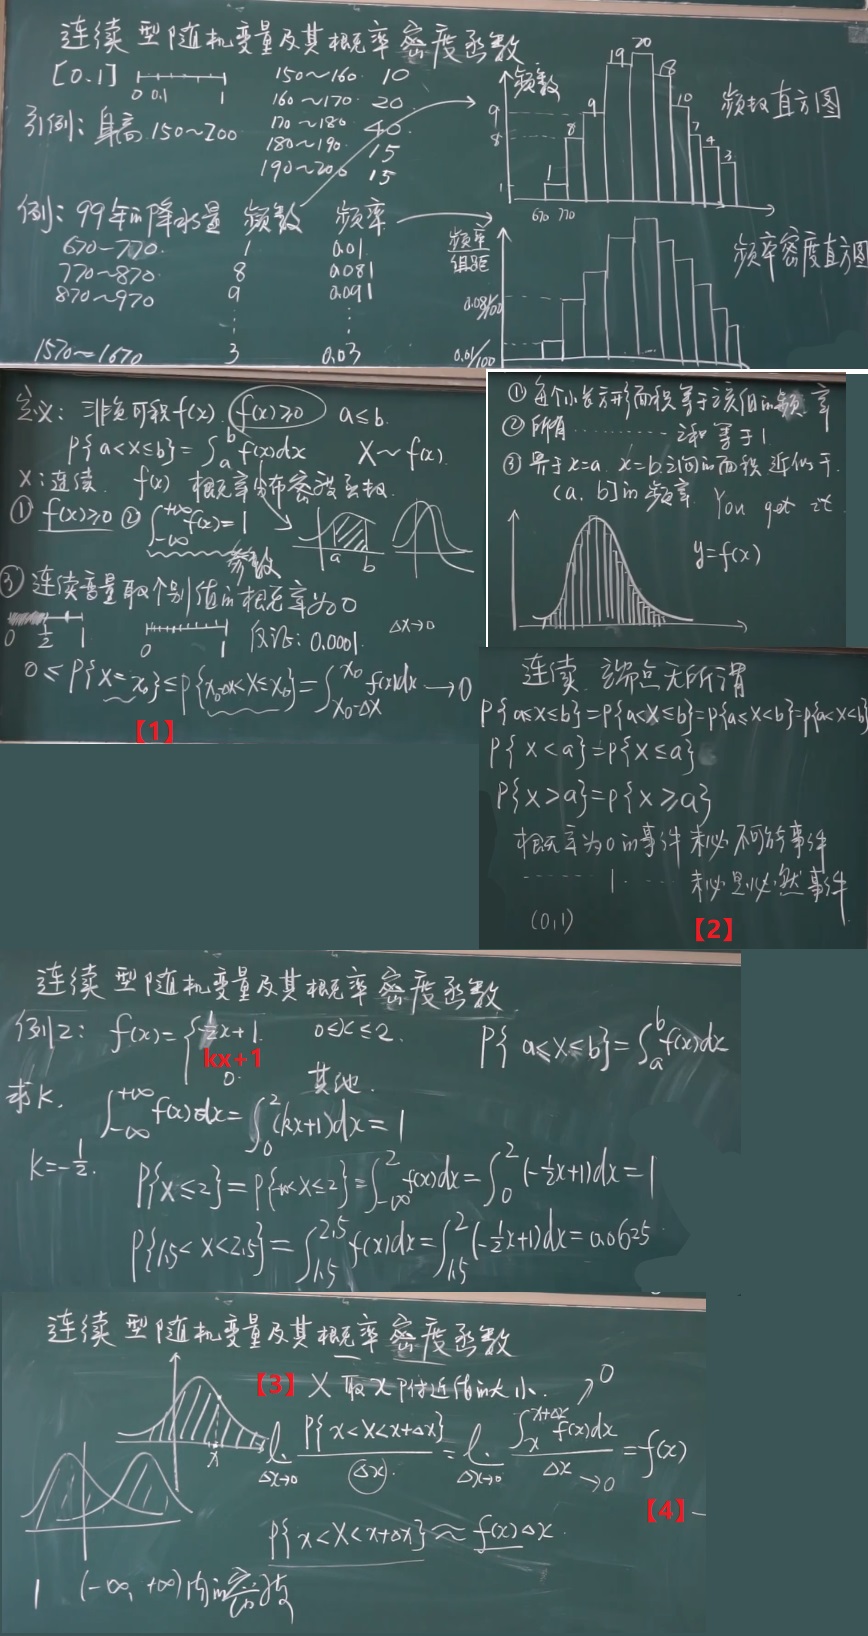 连续型随机变量及其概率密度函数
[0.1] 0 0.1 1
引例：身高 150~200
150~160 10
160~170 20
170~180 40
180~190 15
190~200 15
例：99年的降水量 频数 频率
670-770 1 0.01
770~870 8 0.081
870~970 9 0.091
⋮ ⋮
1570~1670 3 0.03
频数
9
8
1
1 8 9 19 20 18 10 7 4 3
670 770
频数直方图
频率/组距
0.081/100
0.01/100
频率密度直方图
定义：非负可积f(x). f(x)≥0 a≤b.
P{a<X≤b}=∫_a^b f(x)dx X~f(x).
X:连续. f(x) 概率分布密度函数.
① f(x)≥0 ② ∫_{-∞}^{+∞} f(x)=1
a b
参数
③ 连续变量取个别值的概率为0
0 1/2 1 0 1 反证: 0.0001. Δx→0
0≤P{X=x₀}≤P{x₀-Δx<X≤x₀}=∫_{x₀-Δx}^{x₀} f(x)dx→0
【1】
① 每个小长方形面积等于该组的频率
② 所有………之和等于1.
③ 界于x=a. x=b之间的面积近似于.
(a. b]的频率. You get it.
y=f(x)
连续. 端点无所谓
P{a≤X≤b}=P{a<X≤b}=P{a≤X<b}=P{a<X<b}
P{X<a}=P{X≤a}
P{X>a}=P{X≥a}
概率为0的事件未必不可能事件
……1……未必是必然事件
(0,1)
【2】
连续型随机变量及其概率密度函数
例2: f(x)={-1/2x+1. 0≤x≤2. P{a≤X≤b}=∫_a^b f(x)dx
kx+1
0. 其他.
求K. ∫_{-∞}^{+∞} f(x)dx=∫_0^2 (kx+1)dx=1
K=-1/2.
P{X≤2}=P{-∞<X≤2}=∫_{-∞}^2 f(x)dx=∫_0^2 (-1/2x+1)dx=1
P{1.5<X<2.5}=∫_{1.5}^{2.5} f(x)dx=∫_{1.5}^2 (-1/2x+1)dx=0.0625
连续型随机变量及其概率密度函数
【3】 X取x附近值的大小. 0
x
lim_{Δx→0} P{x<X<x+Δx}/Δx = lim_{Δx→0} ∫_x^{x+Δx} f(x)dx/Δx →0 =f(x)
【4】
P{x<X<x+Δx}≈f(x)Δx.
1 (-∞, +∞)内的密度